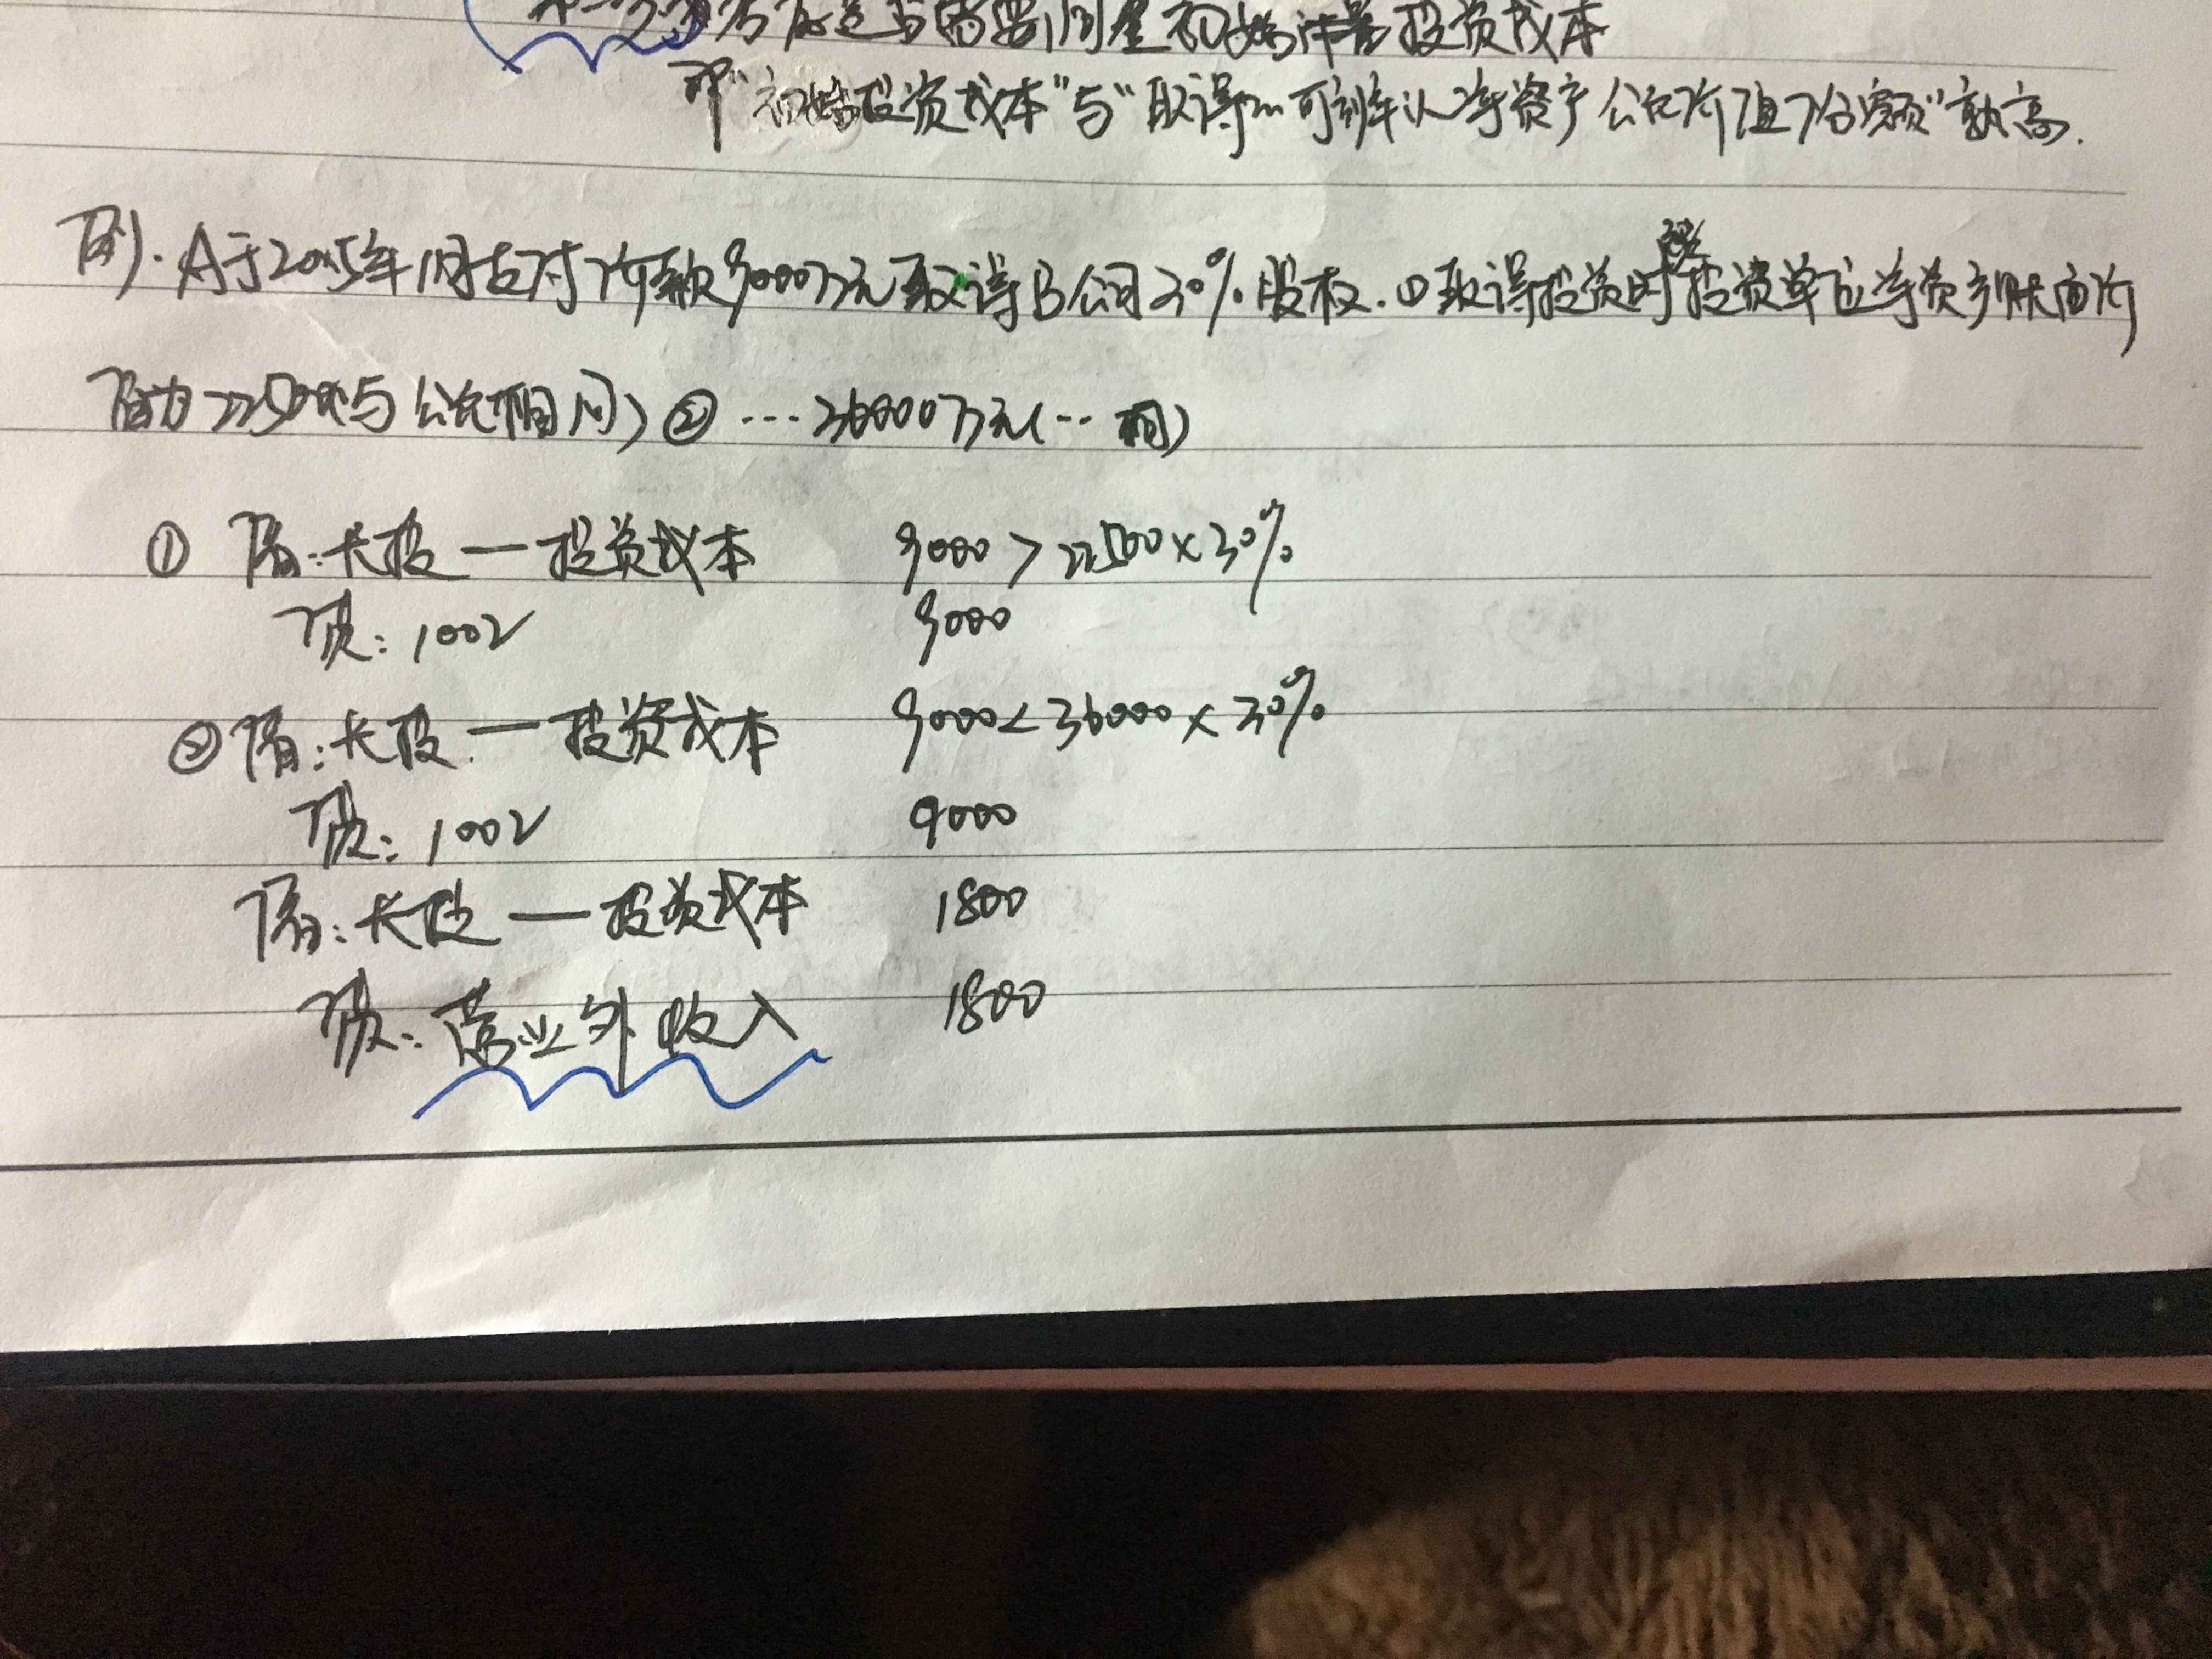 考虑是否需要调整初始计量投资成本
即"初始投资成本"与"取得…可辨认净资产公允价值份额"孰高.
例.A于2015年1月支付价款9000万元取得B公司30%股权.①取得投资时被投资单位净资产账面价
值为22500(与公允相同)②…36000万元(…同)
① 借:长投—投资成本 9000>22500×30%
贷:1002 9000
②借:长投.—投资成本 9000<36000×30%
贷:1002 9000
借:长投—投资成本 1800
贷:营业外收入 1800